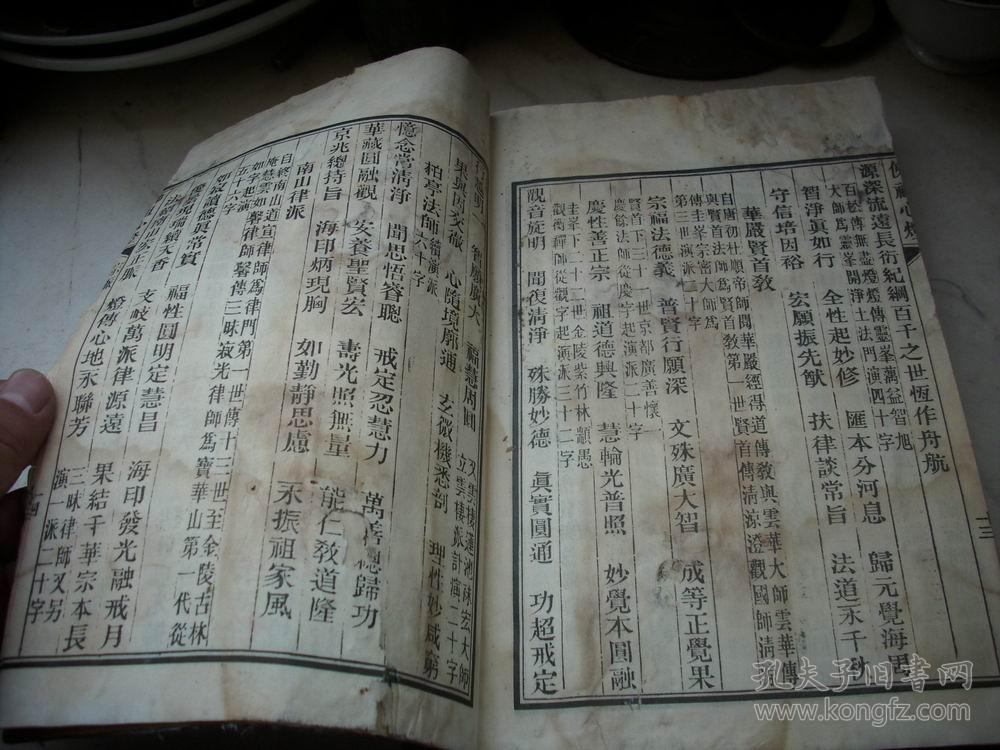 佛祖心燈
十三
源深流遠長衍紀綱百千之世恆作舟航
百松傳無盡燈燈傳靈峯蕅益智旭
大師為靈峯開淨土法門演四十字
智淨眞如行 全性起妙修 匯本分河息 歸元覺海
守信培因裕 宏願振先猷 扶律談常旨 法道永千秋
華嚴賢首教
自唐初杜順帝師閱華嚴經得道傳教與雲華大師雲華傳
與賢首法師為賢首教第一世賢首傳清涼澄觀國師清涼
傳圭峯宗密大師為
第三世演派二十字
宗福法德義 普賢行願深 文殊廣大智 成等正覺果
賢首下三十一世京都廣善懷
慶餘法師從慶字起演派二十字
慶性善正宗 祖道德興隆 慧輪光普照 妙覺本圓融
圭峯下二十二世金陵紫竹林顓愚
觀衡禪師從觀字起演派三十二字
觀音旋明 聞復清淨 殊勝妙德 眞實圓通 功超戒定
智願廣大 福慧周圓
雲棲蓮池祩宏大師
立雲棲派計演二十字
果與因交徹 心隨境廓通 玄微機悉剖 理性妙咸窮
柏亭法師續演派六十字
憶念常清淨 聞思悟睿聰 戒定忍慧力 萬善總歸功
華藏圓融觀 安養聖賢宏 壽光照無量 能仁教道隆
京兆總持旨 海印炳現胸 如勤靜思慮 永振祖家風
南山律派
自終南山道宣律師為律門第一世傳十三世至金陵古林
庵慧雲如馨律師馨傳三昧寂光律師為寶華山第一代從
如字起演
五十六字
如寂讀德眞常實 福性圓明定慧昌 海印發光融戒月
支岐萬派律源遠 果結千華宗本長
燈傳心地永聯芳
三昧律師又另
演一派二十字